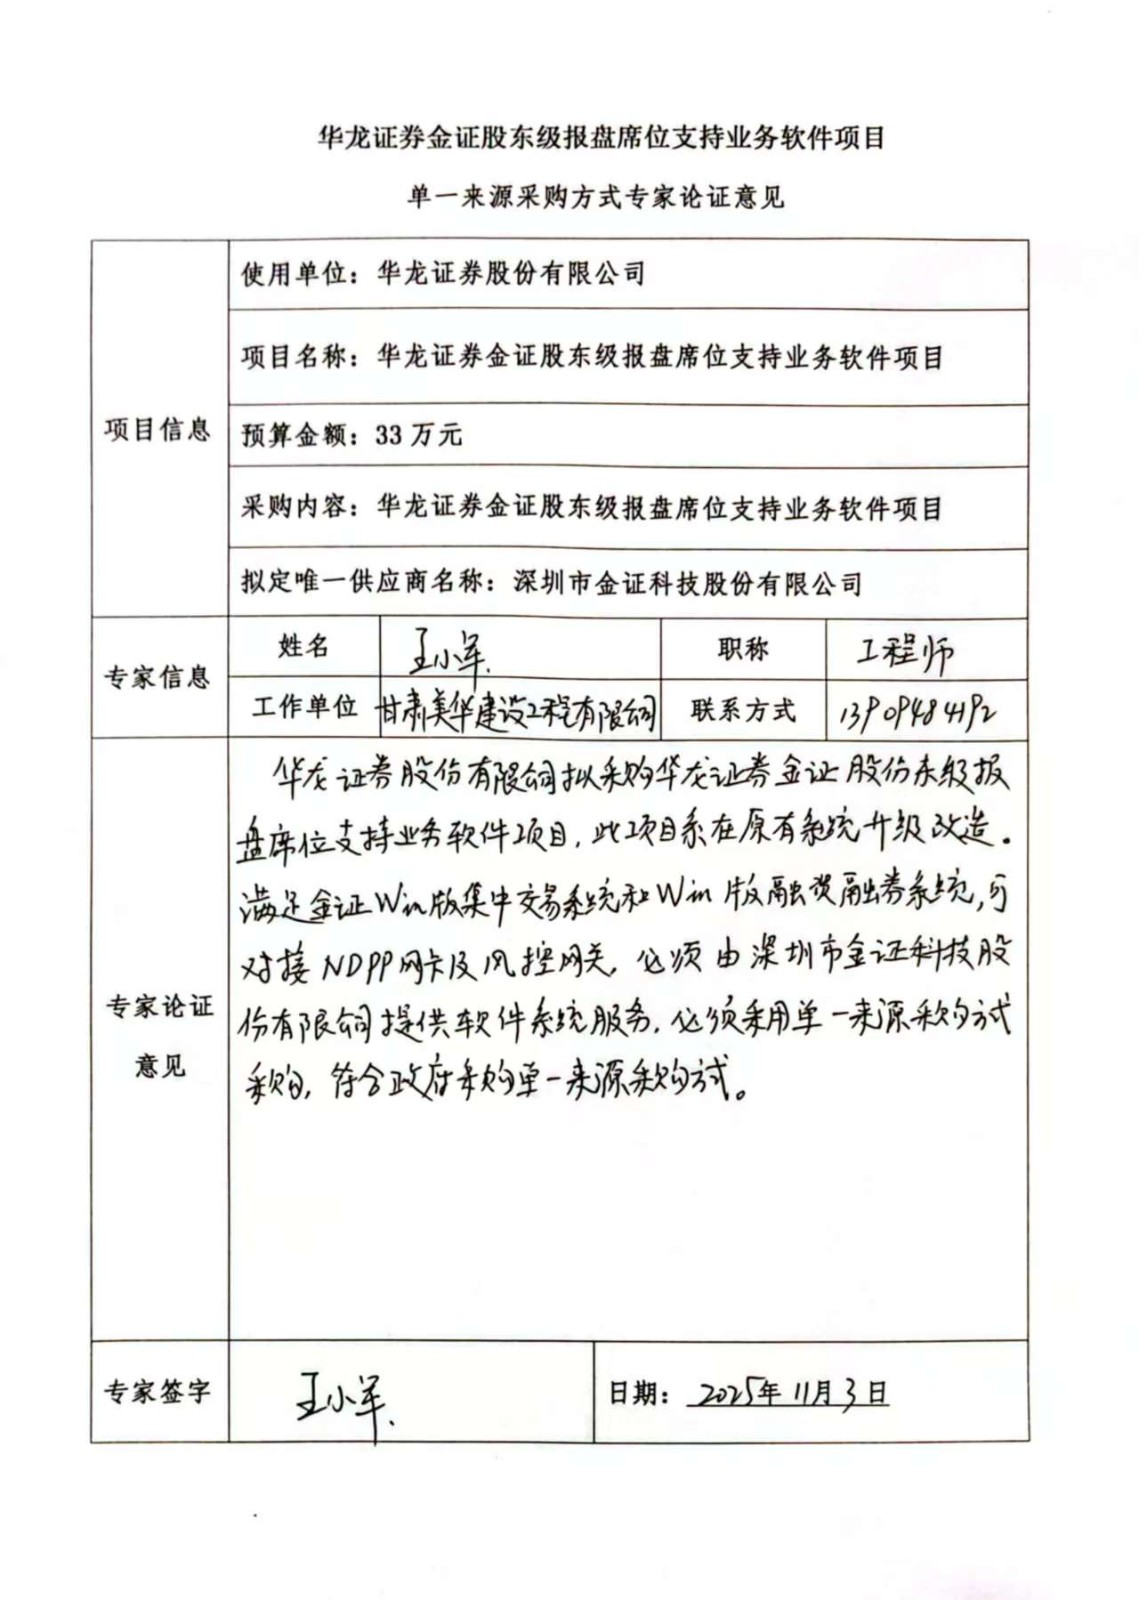 华龙证券金证股东级报盘席位支持业务软件项目
单一来源采购方式专家论证意见
项目信息
使用单位：华龙证券股份有限公司
项目名称：华龙证券金证股东级报盘席位支持业务软件项目
预算金额：33万元
采购内容：华龙证券金证股东级报盘席位支持业务软件项目
拟定唯一供应商名称：深圳市金证科技股份有限公司
专家信息
姓名 王小军 职称 工程师
工作单位 甘肃美华建设工程有限公司 联系方式 13909484192
专家论证
意见
华龙证券股份有限公司拟采购华龙证券金证股份东级报
盘席位支持业务软件项目，此项目系在原有系统升级改造。
满足金证Win版集中交易系统和Win版融资融券系统，可
对接NDPP网卡及风控网关，必须由深圳市金证科技股
份有限公司提供软件系统服务，必须采用单一来源采购方式
采购，符合政府采购单一来源采购方式。
专家签字 王小军 日期：2025年11月3日